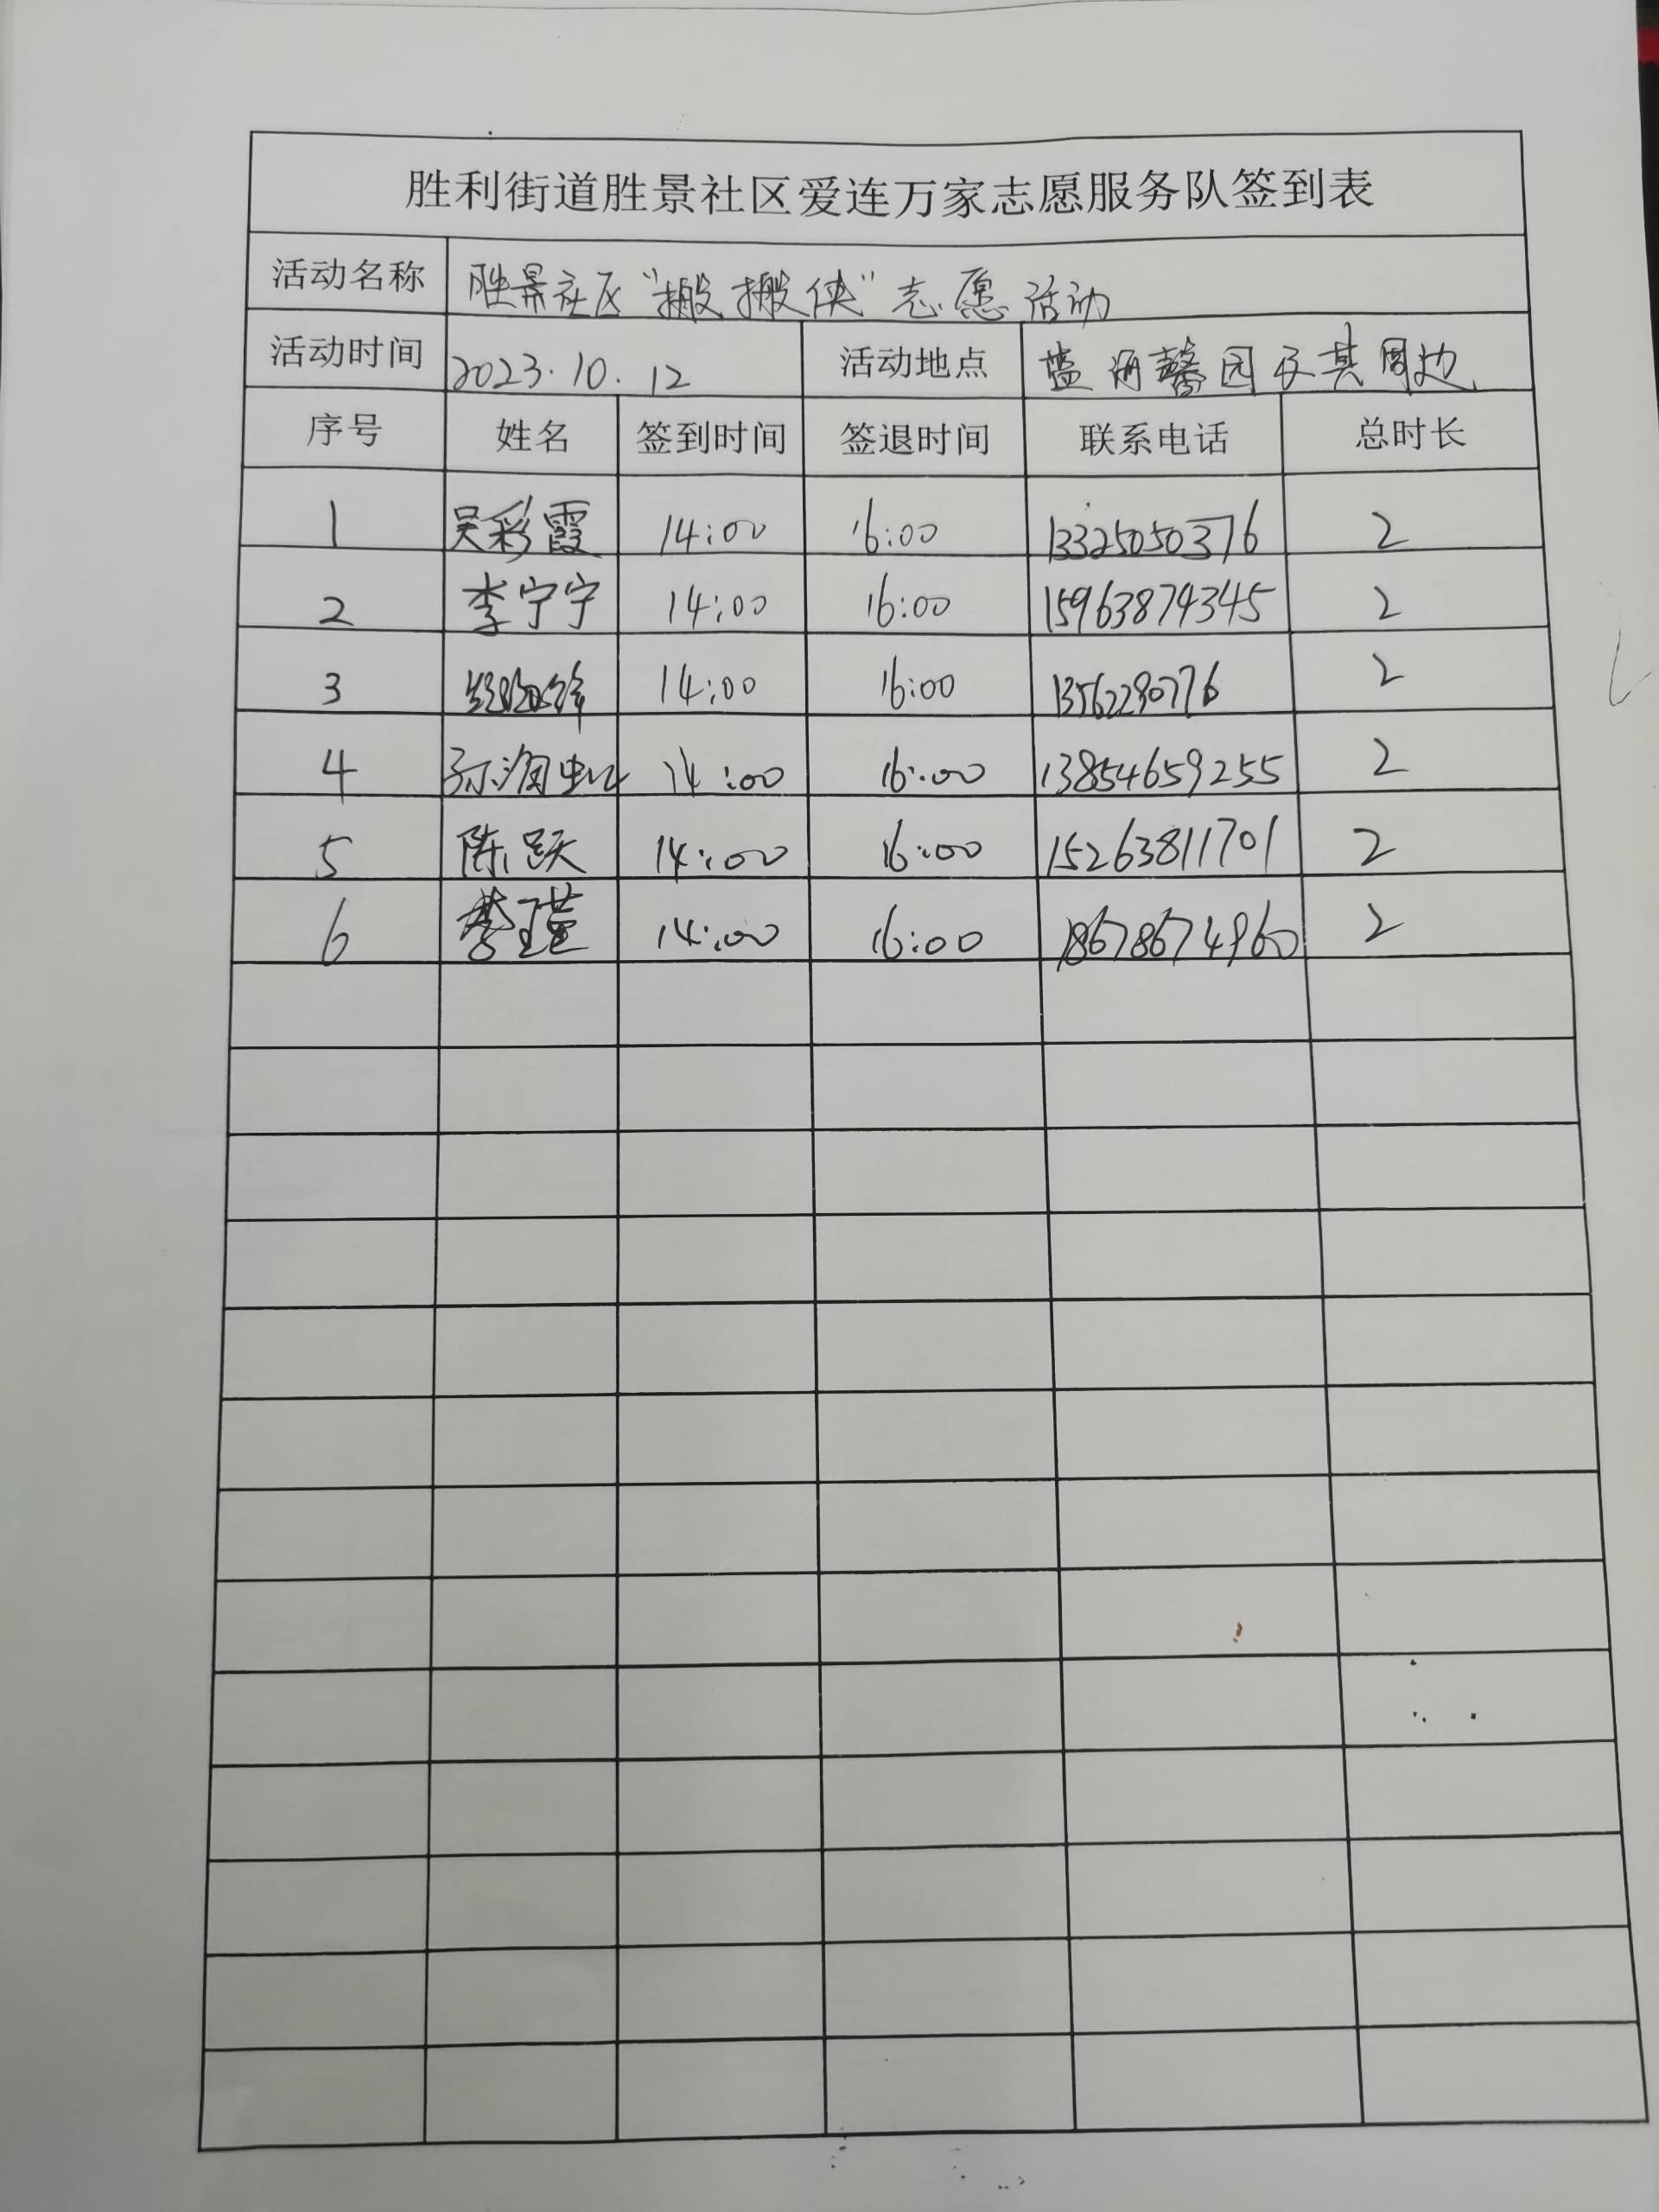 胜利街道胜景社区爱连万家志愿服务队签到表
活动名称 胜景社区“搬搬侠”志愿活动
活动时间 2023.10.12 活动地点 蓝海馨园及其周边
序号 姓名 签到时间 签退时间 联系电话 总时长
1 吴彩霞 14:00 16:00 13325050376 2
2 李宁宁 14:00 16:00 15963874345 2
3 14:00 16:00 2
4 14:00 16:00 13854659255 2
5 陈跃 14:00 16:00 15263811701 2
6 李瑾 14:00 16:00 18678674960 2